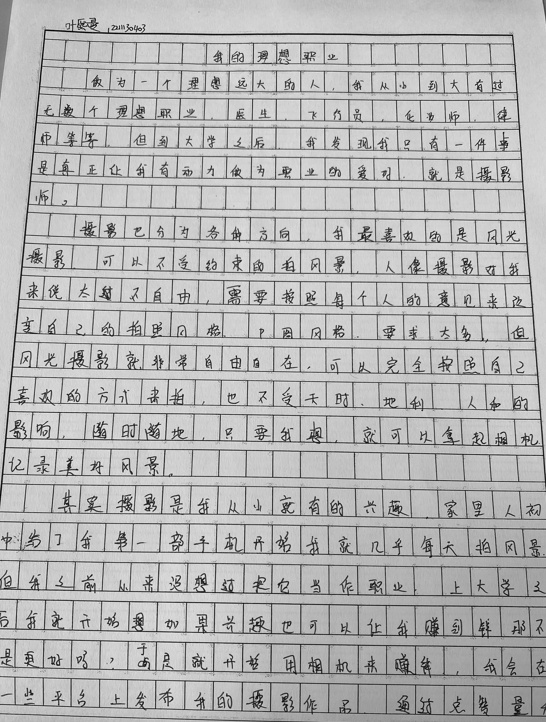 叶 1221130403
我的理想职业
做为一个理想远大的人,我从小到大有过
无数个理想职业,医生,飞行员,化妆师,律
师等等,但到大学之后,我发现我只有一件事
是真正让我有动力做为职业的爱好,就是摄影
师。
摄影也分为各种方向,我最喜欢的是风光
摄影,可以不受约束的拍风景,人像摄影对我
来说太过不自由,需要按照每个人的意见来改
变自己的拍照风格,P图风格,要求太多,但
风光摄影就非常自由自在,可以完全按照自己
喜欢的方式来拍,也不受天时、地利、人和的
影响,随时随地,只要我想,就可以拿起相机
记录美好风景。
其实摄影是我从小就有的兴趣,家里人初
中给了我第一部手机开始我就几乎每天拍风景,
但我之前从来没想过把它当作职业,上大学之
后我就开始想如果兴趣也可以让我赚到钱那不
是更好吗?于是就开始用相机来赚钱,我会在
一些平台上发布我的摄影作品,通过点赞量